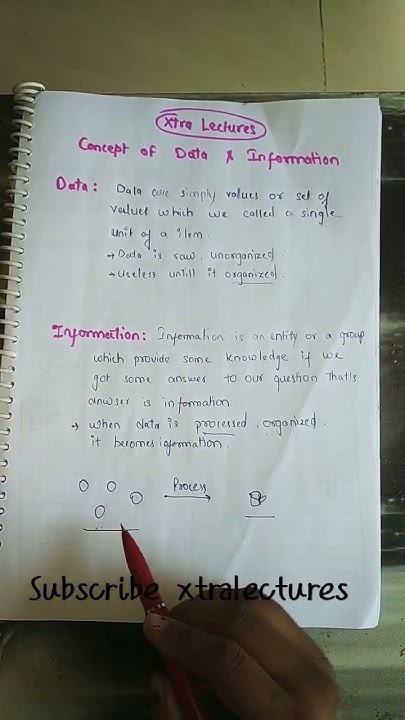 Xtra Lectures
Concept of Data & Information
Data: Data are simply values or set of
values which we called a single
unit of a item.
→ Data is raw, unorganized.
→ useless untill it organized.
Information: Information is an entity or a group
which provide some knowledge if we
got some answer to our question that's
anwser is information.
→ when data is processed, organized.
it becomes information.
Process
Subscribe xtralectures